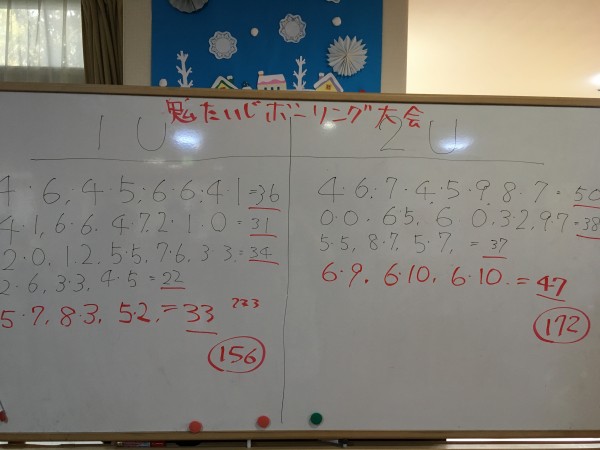 鬼たいじボーリング大会
1U 2U
4・6,4・5,6・6,4・1=36
4・1,6・6,4・7,2・1・0=31
2・0,1・2,5・5,7・6,3・3=34
2・6,3・3,4・5=22
5・7,8・3,5・2,=33
156
4・6,7・4,5・9,8・7=50
0・0・65,6 0,3・2,97=38
5・5,8・7,5・7,=37
6・9,6・10,6・10,=47
172